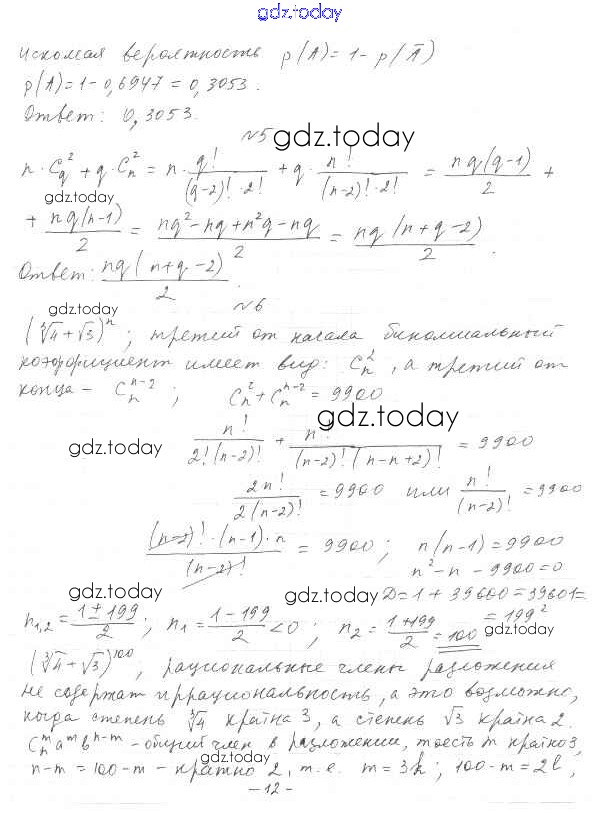 gdz.today
Искомая вероятность p(A) = 1 - p(Ā)
p(A) = 1 - 0,6947 = 0,3053.
Ответ: 0,3053.
№5 gdz.today
n · C_q^2 + q · C_n^2 = n · q!/((q-2)! · 2!) + q · n!/((n-2)! · 2!) = nq(q-1)/2 +
gdz.today
+ nq(n-1)/2 = (nq^2 - nq + n^2q - nq)/2 = nq(n+q-2)/2.
Ответ: nq(n+q-2)/2.
№6
gdz.today
(∛4 + √3)^n; третий от начала биномиальный
коэффициент имеет вид: C_n^2, а третий от
конца – C_n^{n-2}; C_n^2 + C_n^{n-2} = 9900
gdz.today
gdz.today
n!/(2!(n-2)!) + n!/((n-2)!(n-n+2)!) = 9900
2n!/(2(n-2)!) = 9900 или n!/(n-2)! = 9900
(n-2)! · (n-1) · n/(n-2)! = 9900; n(n-1) = 9900
n^2 - n - 9900 = 0
gdz.today gdz.today D = 1 + 39600 = 39601 =
= 199^2
n_{1,2} = (1 ± 199)/2; n_1 = (1 - 199)/2 < 0; n_2 = (1 + 199)/2 = 100 gdz.today
(∛4 + √3)^100; рациональные члены разложения
не содержат иррациональность, а это возможно,
когда степень ∛4 кратна 3, а степень √3 кратна 2.
C_n^m a^m b^{n-m} – общий член в разложении, то есть m кратно 3,
n-m = 100-m – кратно 2, т.е. m = 3k; 100-m = 2l,
gdz.today
-12-